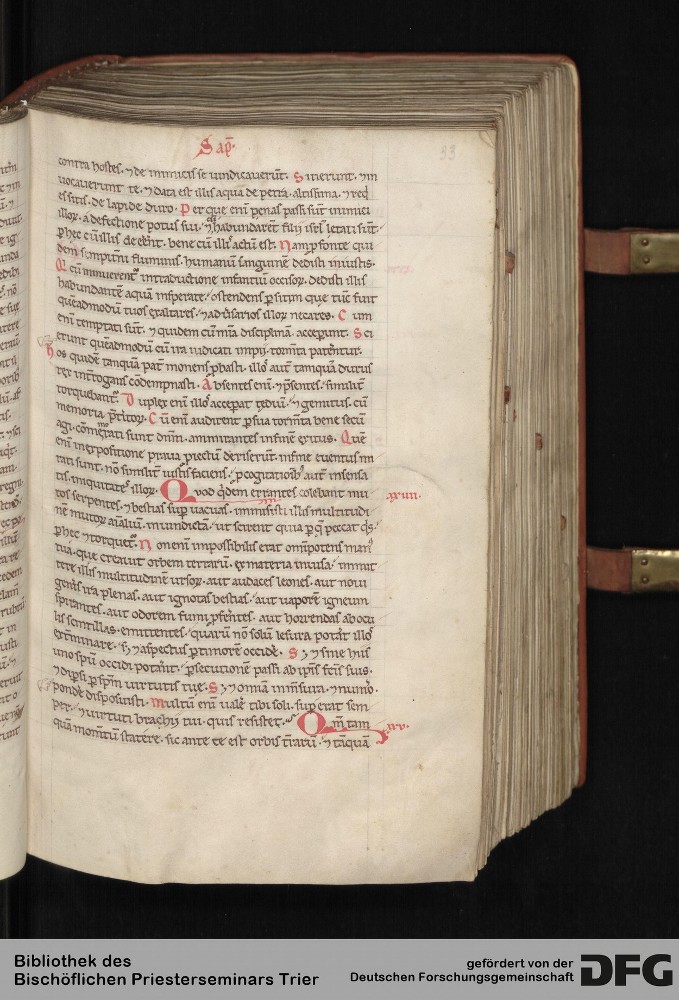 Sap̄
33
contra hostes. ⁊ de inimicis se uindicauerūt. Sitierunt. ⁊ in
uocauerunt te. ⁊ data est illis aqua de petra altissima. ⁊ req̇
es sitis. de lapide duro. Per que enī penas passi sunt inimici
illoꝝ. a defectione potus sui. ⁊ habundarēt filii isrl letati sūt.
ꝑ hec cū illis deeēnt. bene cū illis actū est. Nam ꝓ fonte qui
dem sempitni fluminis. humanū sanguinē dedisti iniustis.
Qui cū minuerent in traductione infantiū occisoꝝ. dedisti illis
habundantē aquā insperate. ostendens ꝑ sitim que tūc fuit
quēadmodū tuos exaltares. ⁊ aduersarios illoꝝ necares. Cum
enī temptati sūt. ⁊ quidem cū mīa disciplinā acceperunt. Sci
erunt quēadmodū cū ira iudicati impii. tormta patērntur.
hos quidē tanquā pat monens ꝓbasti. illos aut tamquā durus
rex introgans cōdempnasti. Absentes enī. ⁊ p̄sentes. similit
torquebant. Duplex enī illos acceꝑat tediū. ⁊ gemitus. cū
memoria p̄titoꝝ. Cū enī audirent ꝑ sua tormta bene secū
agi. cōmemorati sunt dnm. ammirantes in fine exitus. Quē
enī in expositione praua piectū deriserūt. in fine euentus mi
rati sunt. nō similit iustis faciens. ꝓ cogitationibꝫ aut insensa
tis. iniquitates illoꝝ. Quod q̇dem errantes colebant mu
xvii.
tos serpentes. ⁊ bestias sup uacuas. immisisti illis multitudi
nē mutoꝝ aīaliū. in uindictā. ut scirent quia ꝑ q̄ peccat q̇s.
ꝑ hec ⁊ torquet. Non enī impossibilis erat om̄ipotens man
tua. que creauit orbem terrarū. ex materia inuisa. immit
tere illis multitudinē ursoꝝ. aut audaces leones. aut noui
gen̄is ira plenas. aut ignotas bestias. aut uaporē igneum
spirantes. aut odorem fumi ꝓferentes. aut horrendas ab ocu
lis scintillas emittentes. quarū nō solū lesura poterat illos
extminare. sꝫ ⁊ aspectus ꝑ timorē occidē. Sꝫ ⁊ sine hiis
uno spū occidi poterant. ꝑsecutionem passi ab ipsis fcīs suis.
⁊ dispsi ꝑ spm uirtutis tue. Sꝫ omnia in msura. ⁊ numo.
⁊ pondē disposuisti. Multū enī ualē tibi soli. supatat sem
per. ⁊ uirtuti brachii tui. quis resistet. Qm̄ tam
xv.
quā momtū staterē. sic ante te est orbis tr̄aruꝫ. ⁊ tāquā
Bibliothek des
Bischöflichen Priesterseminars Trier
gefördert von der
Deutschen Forschungsgemeinschaft
DFG